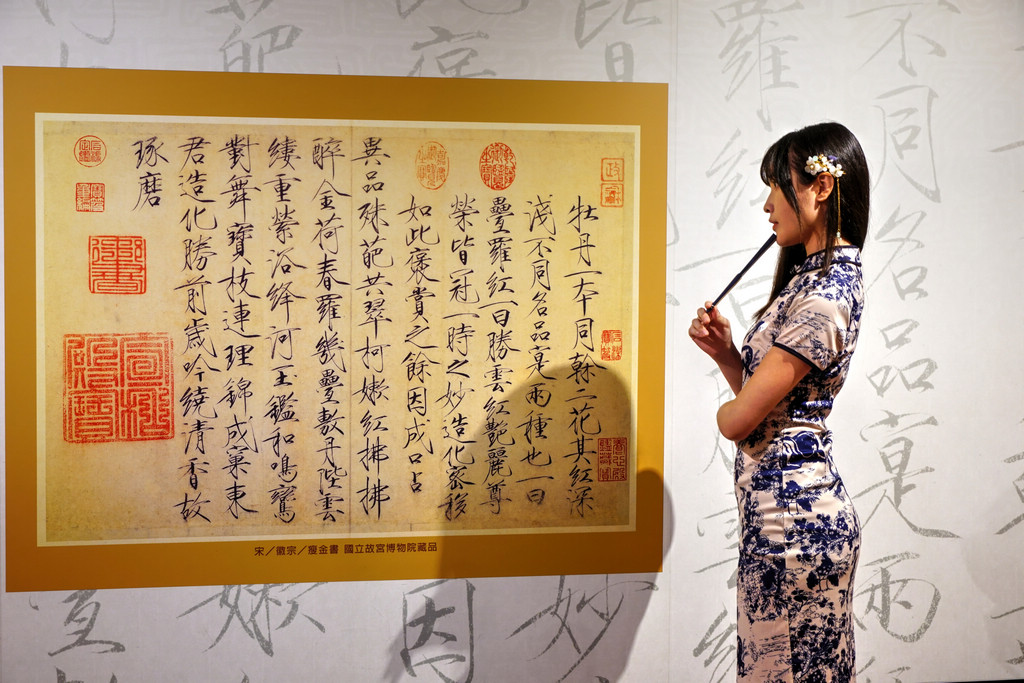 牡丹一本同榦二花其紅深
淺不同名品寔兩種也一曰
疊羅紅一曰勝雲紅艷麗尊
榮皆冠一時之妙造化密移
如此褒賞之餘因成口占
異品殊葩共翠柯嫩紅拂拂
醉金荷春羅幾疊敷丹陛雲
縷重縈浴絳河玉鑑和鳴鸞
對舞寶枝連理錦成窠東
君造化勝前歲吟繞清香故
琢磨
宋／徽宗／瘦金書 國立故宮博物院藏品
不同名品寔兩
羅紅
皆
妙
因
嫩
葩